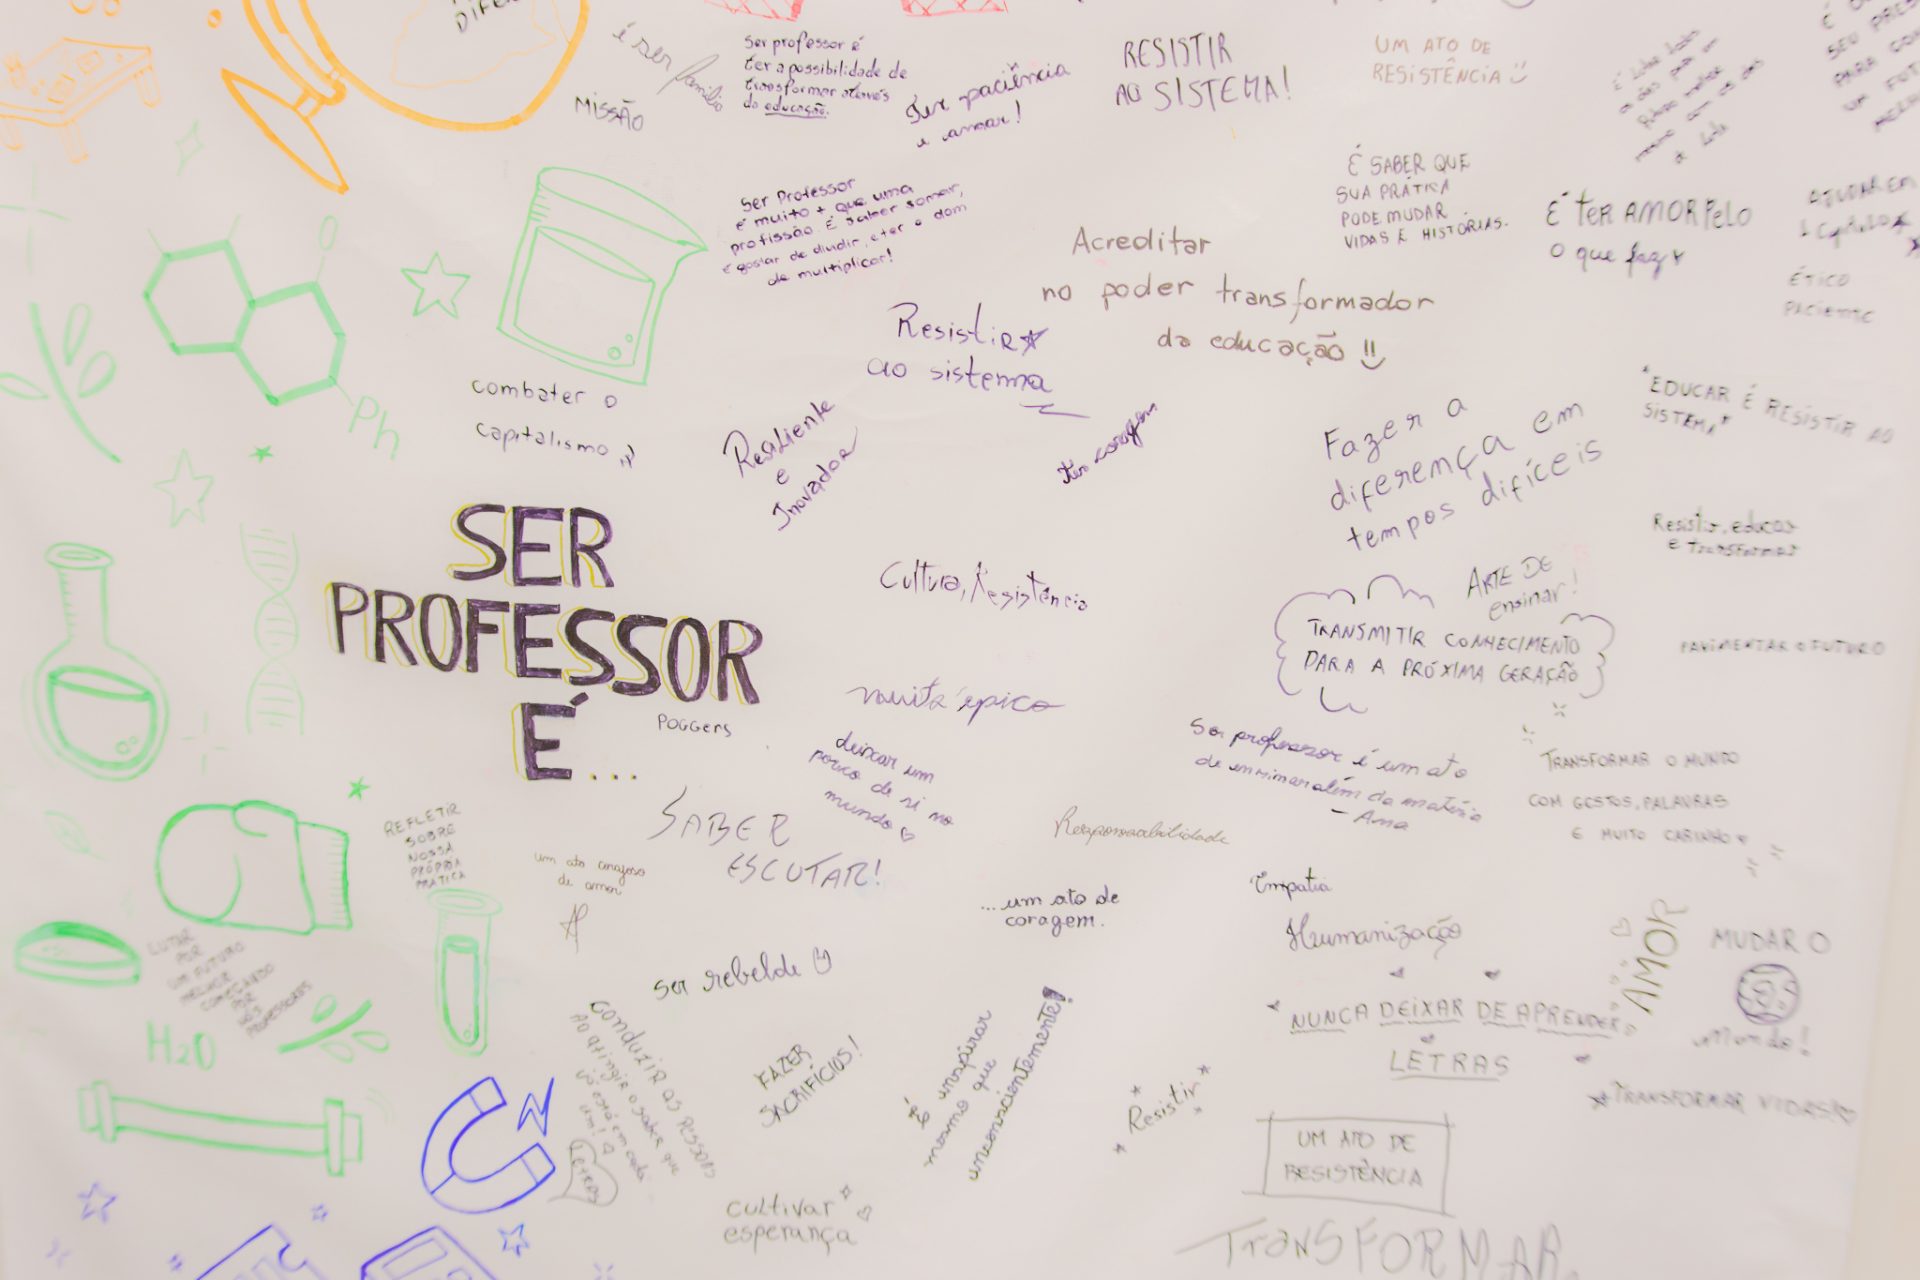 MISSÃO
é ser família
Ser professor é
ter a possibilidade de
transformar através
da educação.
Ter paciência
e amar!
RESISTIR
AO SISTEMA!
UM ATO DE
RESISTÊNCIA
Ser Professor
é muito + que uma
profissão. É saber somar,
é gostar de dividir, e ter o dom
de multiplicar!
É SABER QUE
SUA PRÁTICA
PODE MUDAR
VIDAS E HISTÓRIAS.
É TER AMOR PELO
o que faz
AJUDAR EM
ÉTICO
PACIENTE
Acreditar
no poder transformador
da educação !!
Resistir
ao sistema
combater o
capitalismo
Resiliente
e
Inovador
ter coragem
Fazer a
diferença em
tempos difíceis
"EDUCAR É RESISTIR AO
SISTEMA"
Resistir, educar
e transformar
SER
PROFESSOR
É...
Cultura, Resistência
ARTE DE
ensinar!
TRANSMITIR CONHECIMENTO
PARA A PRÓXIMA GERAÇÃO
PAVIMENTAR O FUTURO
muito épico
POGGERS
deixar um
pouco de si no
mundo
Ser professor é um ato
de ensinar além da matéria
- Ana
TRANSFORMAR O MUNDO
COM GESTOS, PALAVRAS
E MUITO CARINHO
SABER
ESCUTAR!
Responsabilidade
REFLETIR
SOBRE
NOSSA
PRÓPRIA
PRÁTICA
um ato corajoso
de amor
...um ato de
coragem.
Empatia
Humanização
AMOR
MUDAR O
mundo!
LUTAR
POR
UM FUTURO
MELHOR
COMEÇANDO
POR
NÓS
PROFESSORES
ser rebelde
NUNCA DEIXAR DE APRENDER
LETRAS
CONDUZIR AS PESSOAS
AO ATINGIR o saber que
já está em cada
um!
LETRAS
FAZER
SACRIFÍCIOS!
É inspirar
mesmo que
inconscientemente!
Resistir
TRANSFORMAR VIDAS!
UM ATO DE
RESISTÊNCIA
cultivar
esperança
TRANSFORMAR
Ph
H2O